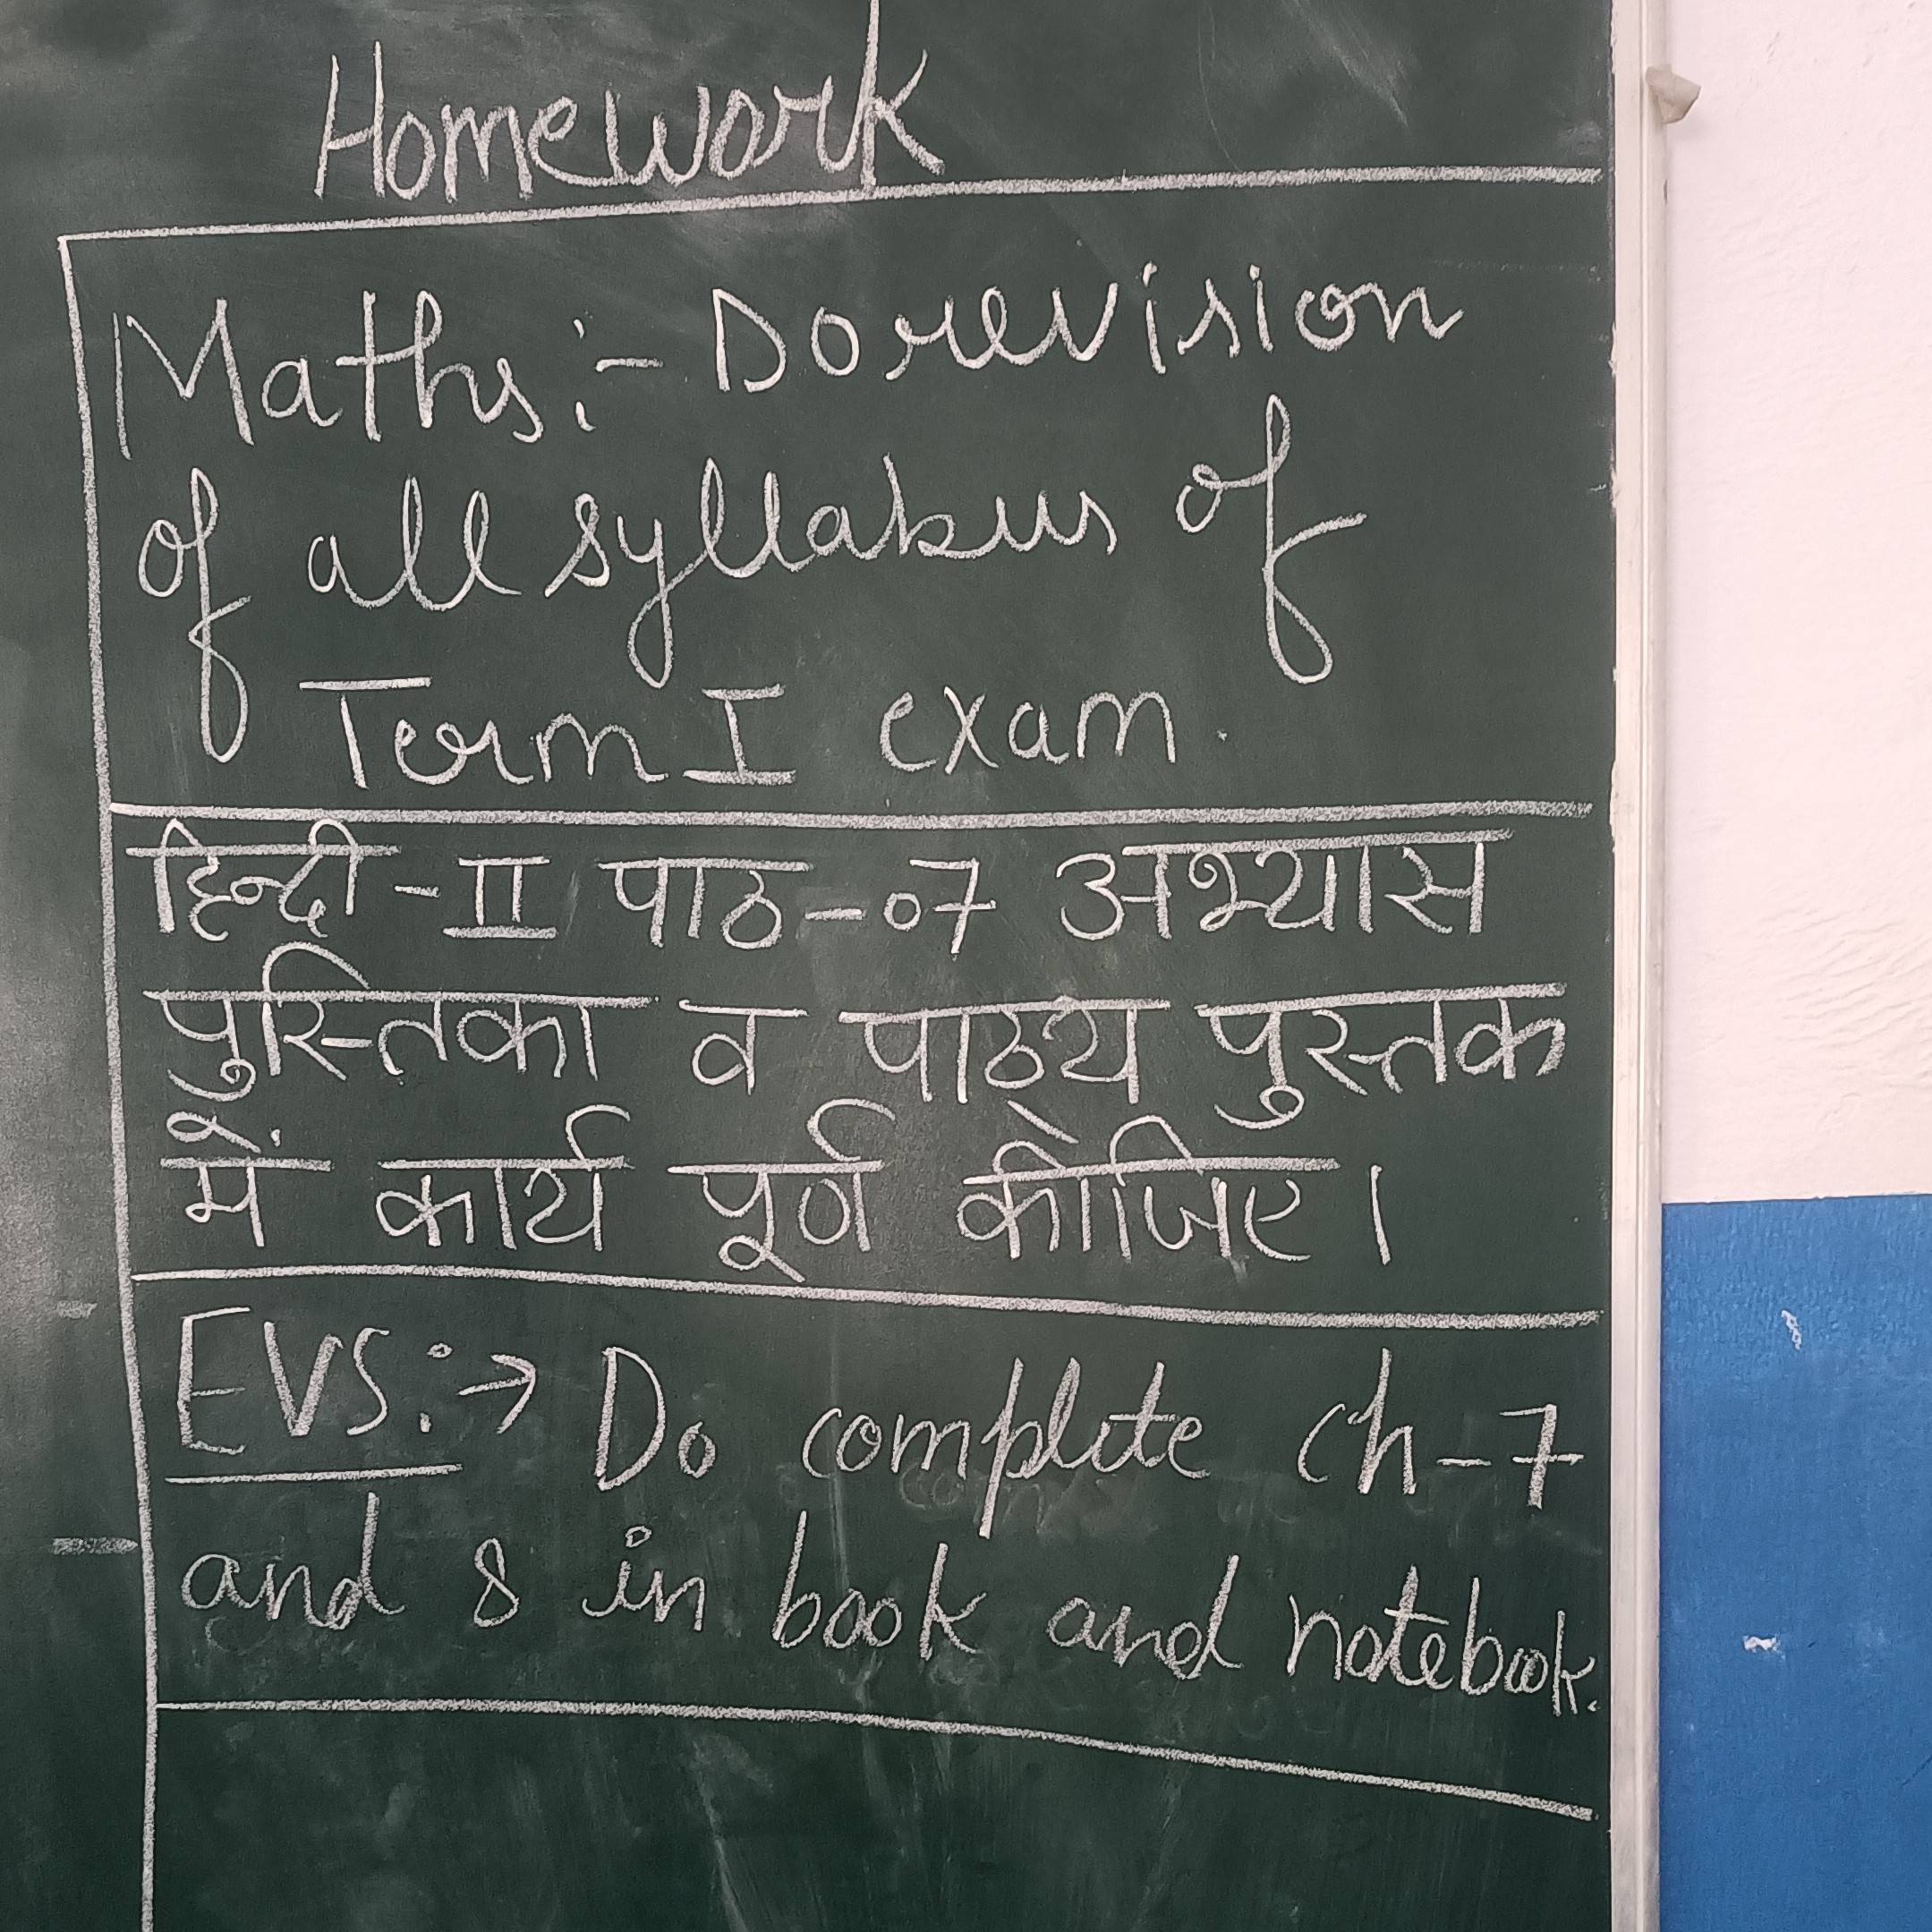 Homework
Maths:- Do revision
of all syllabus of
Term I exam.
हिन्दी - II पाठ - 07 अभ्यास
पुस्तिका व पाठ्य पुस्तक
में कार्य पूर्ण कीजिए।
EVS:→ Do complete ch-7
and 8 in book and notebook.